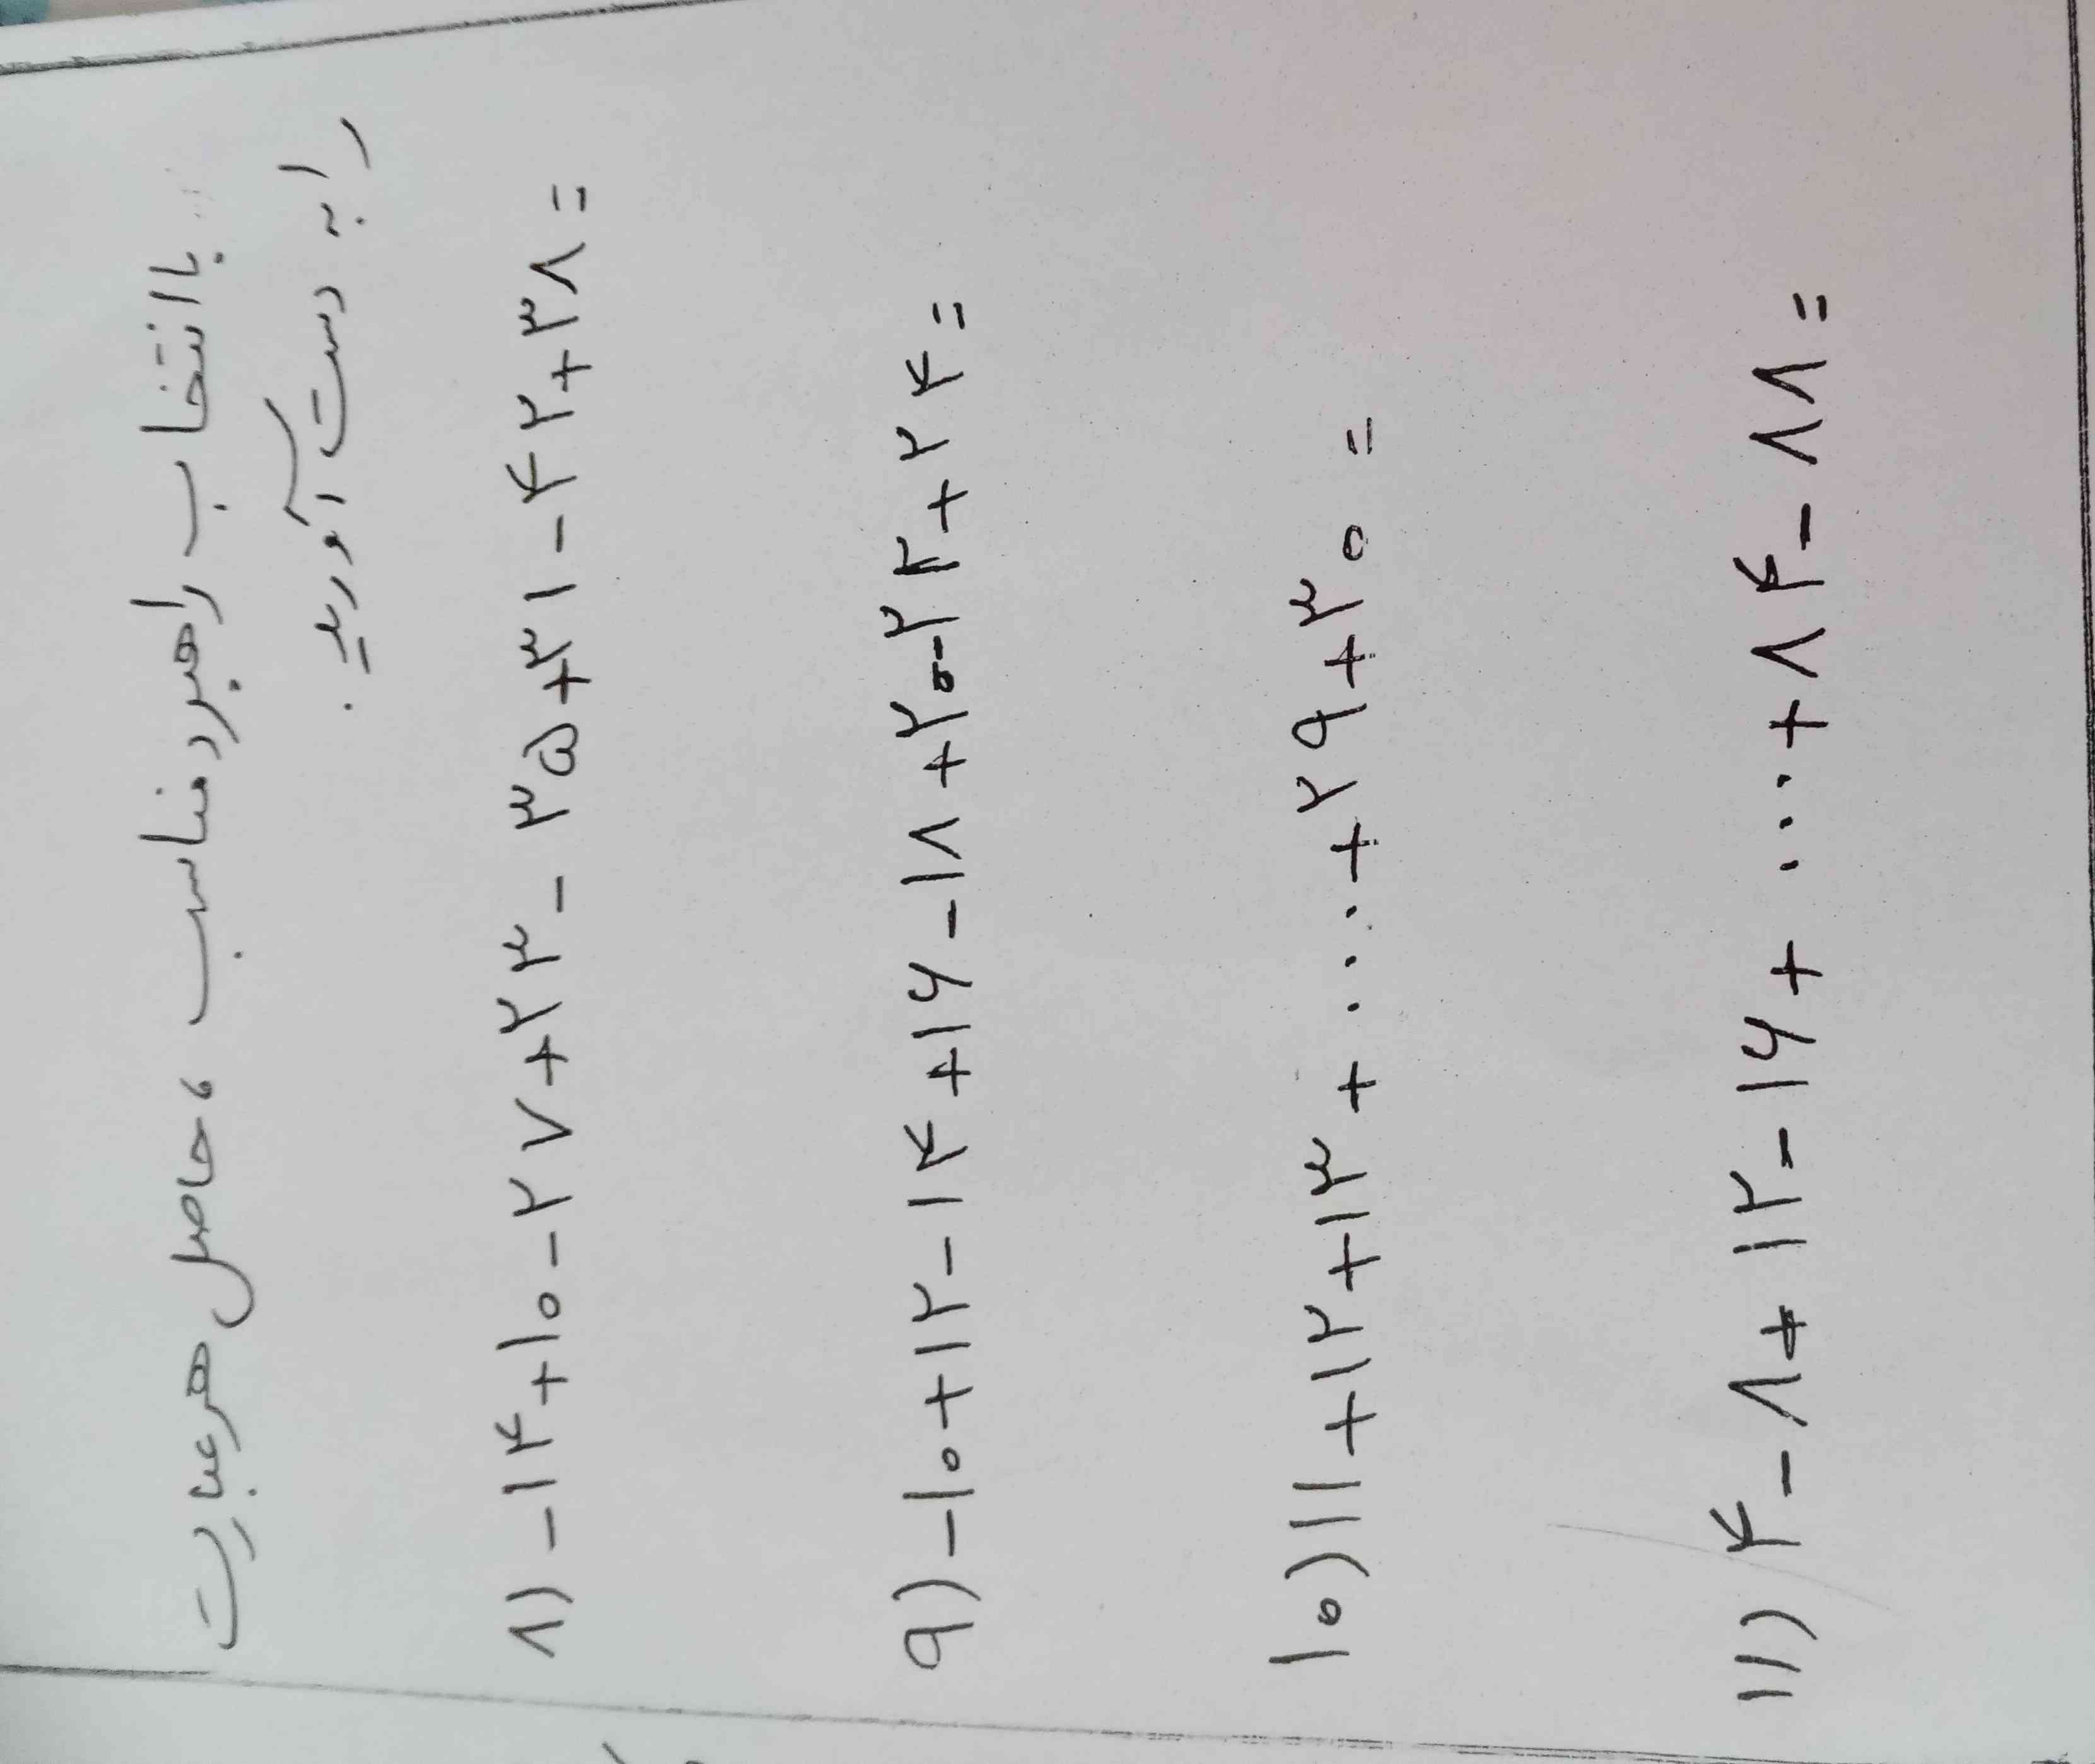 با انتخاب راهبرد مناسب ، حاصل هر عبارت
را به دست آورید.
۸) -۱۴+۱۰-۲۷+۲۳-۳۵+۳۱-۴۲+۳۸=
۹) -۱۰+۱۲-۱۴+۱۶-۱۸+۲۰-۲۲+۲۴=
۱۰) ۱۱+۱۲+۱۳+....+۲۹+۳۰=
۱۱) ۴-۸+۱۲-۱۶+....+۸۴-۸۸=